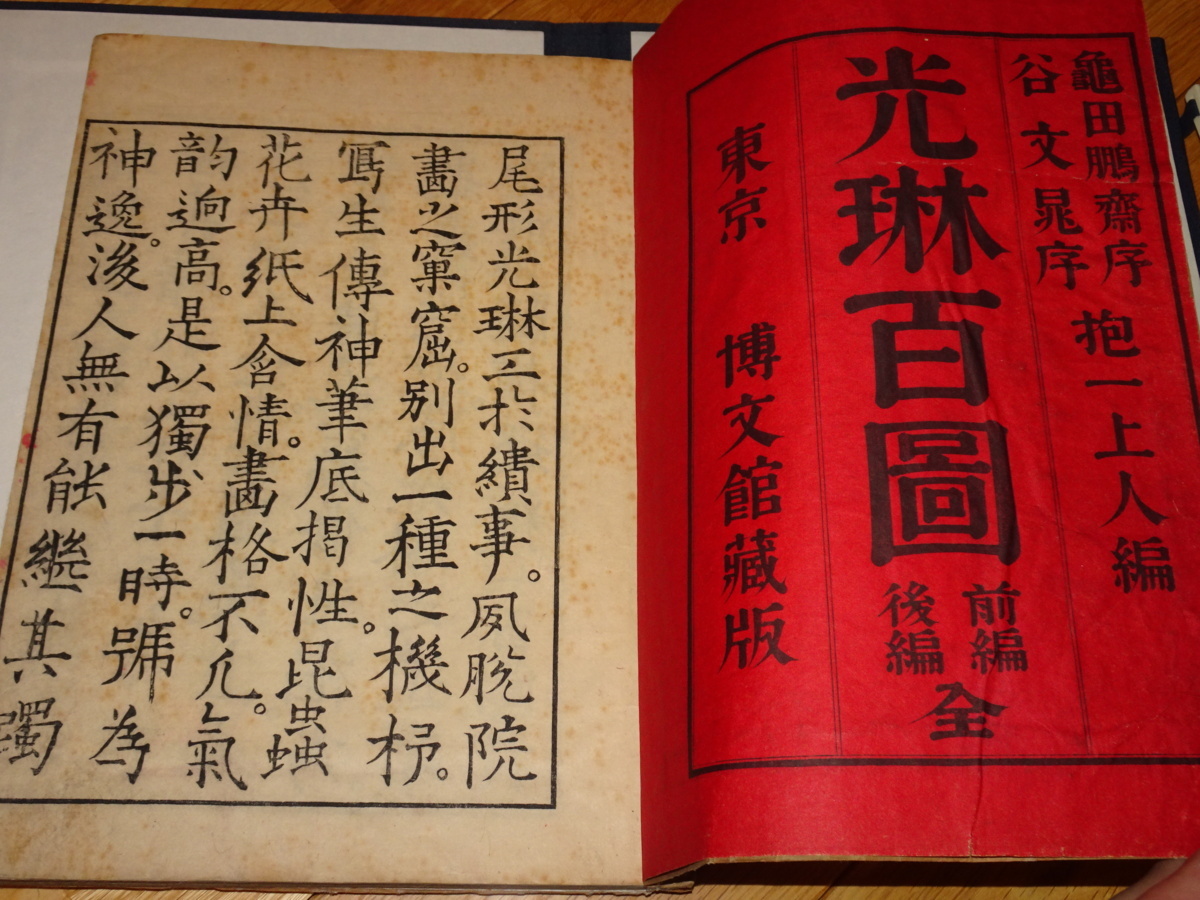 龜田鵬齋序
谷文晁序
抱一上人編
光琳百圖
前編
後編
全
東京 博文館藏版
尾形光琳工於繢事。夙脫院
畫之窠窟。別出一種之機杼。
寫生傳神筆底揭性。昆虫蝕
花卉紙上含情。畫格不凡。氣
韵逈高。是以獨步一時。號為
神逸。後人無有能繼其躅